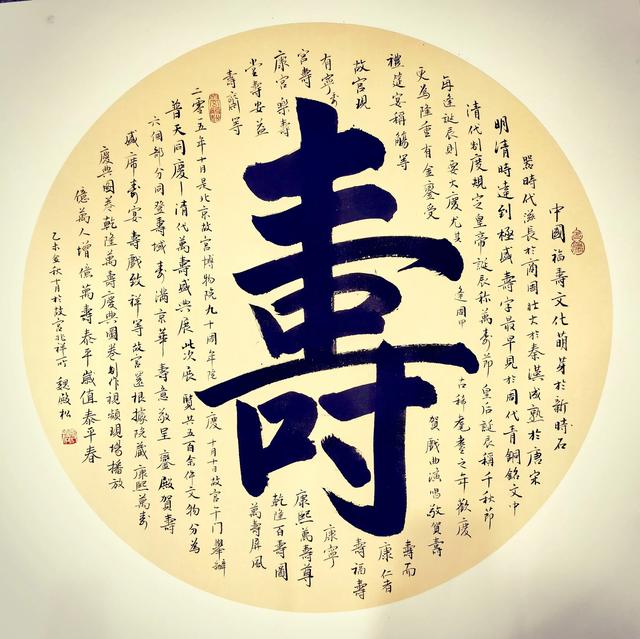 壽
中國福壽文化萌芽於新時石
器時代滋長於商周壯大於秦漢成熟於唐宋
明清時達到極盛壽字最早見於周代青銅銘文中
清代制度規定皇帝誕辰称萬壽節皇后誕辰稱千秋節
每逢誕辰則要大慶尤其逢周甲古稀耄耋之年歡慶
更為隆重有金鑾受賀戲曲演唱敬賀壽
禮筵宴稱觴等
故宮現
有寧壽
宮壽
康宮樂壽
堂壽安益
壽齋等
壽而
康仁者
壽福壽
康寧
康熙萬壽尊
乾隆百壽圖
萬壽屏風
二零一五年十月是北京故宮博物院九十周年院慶十月十日故宮午門舉辦
普天同慶—清代萬壽盛典展此次展覽共五百余件文物分為
六個部分同登壽域壽滿京華壽意敬呈鑾殿賀壽
盛席壽宴壽戲致祥等故宮還根據院藏康熙萬壽
慶典圖卷乾隆萬壽慶典圖卷制作視頻現場播放
億萬人增億萬壽泰平歲值泰平春
乙未年秋月於故宮兆祥所魏殿松